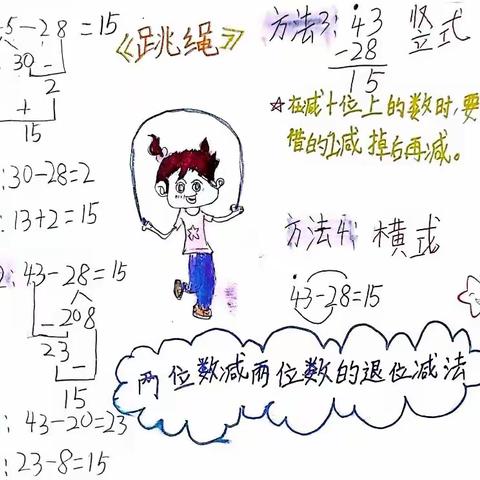 5-28=15
30 -
2
+
15
:30-28=2
:13+2=15
《跳绳》
方法3: 43 竖式
-28
15
☆在减十位上的数时,要
借的1减掉后再减。
2:43-28=15
-20 8
23
-
15
:43-20=23
:23-8=15
方法4: 横式
43-28=15
两位数减两位数的退位减法